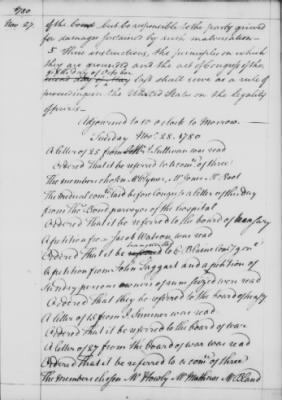 1780
Nov. 27.
of the bond but be responsible to the party grieved
for damages sustained by such malversation—
5 These instructions, the principles on which
they are grounded and the act of Congress of the
day of October
last shall serve as a rule of
proceeding in the United States on the legality
of
Adjourned to 10 o clock to Morrow.
Tuesday Nov. 28. 1780
A letter of 25 from Sullivan was read
Ordered That it be referred to a comee of three
The members chosen Mr Mr Jones Mr Root
The medical comee laid before Congress a letter of this day
from Thos Bond purveyor of the hospital
Ordered that it be referred to the board of treasury
A petition from Jacob Watson was read
Ordered that it be transmitted to E. Blaine Comy Genl
A petition from John Taggart and a petition of
Sundry persons owners of rum seized were read
Ordered That they be referred to the board of treasy
A letter of 15 from J. Sumner was read
Ordered That it be referred to the board of war
A letter of 27 from the board of war
Ordered That it be referred to a comee of three
The members chosen Mr Houly Mr Mathews Mr Bland